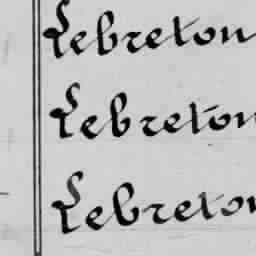 Lebreton
Lebreton
Lebreton